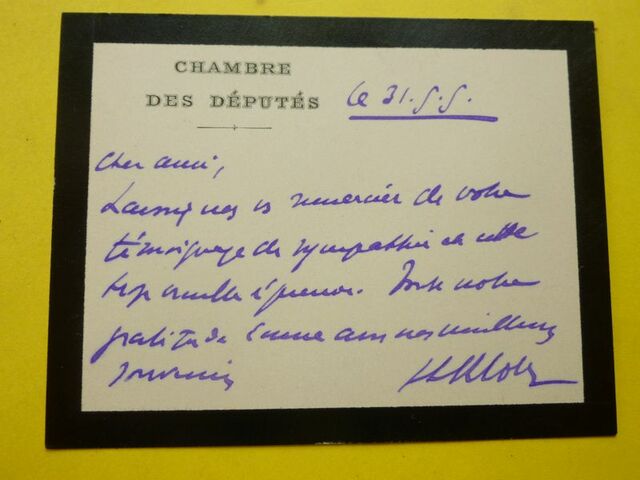 CHAMBRE
DES DÉPUTÉS
le 31.5.5.
Cher ami,
Laissez nous vs remercier de votre
témoignage de sympathie en cette
trop cruelle épreuve. Toute notre
gratitude comme avec nos meilleurs
souvenirs
LLKlotz